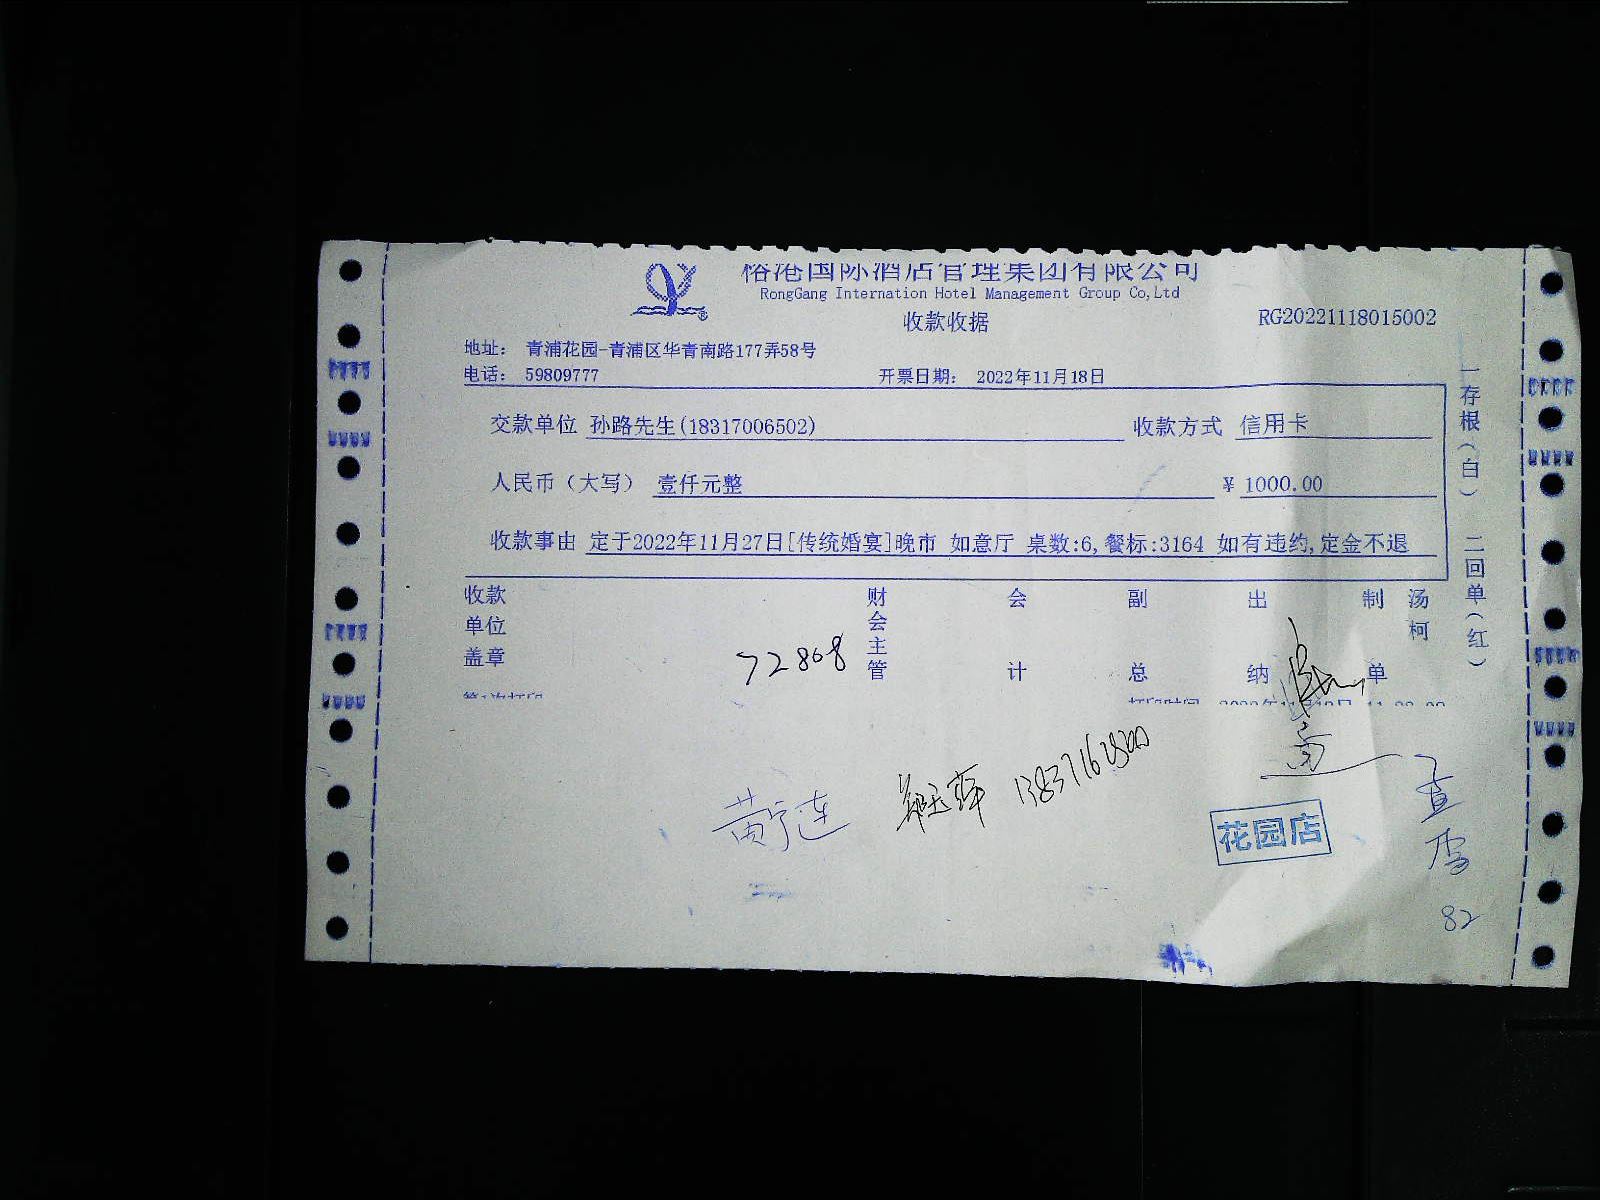 榕港国际酒店管理集团有限公司
RongGang Internation Hotel Management Group Co,Ltd
收款收据
RG20221118015002
地址： 青浦花园-青浦区华青南路177弄58号
电话： 59809777 开票日期： 2022年11月18日
交款单位 孙路先生(18317006502) 收款方式 信用卡
人民币（大写） 壹仟元整 ¥ 1000.00
收款事由 定于2022年11月27日[传统婚宴]晚市 如意厅 桌数:6,餐标:3164 如有违约,定金不退
收款单位盖章
72868
财会主管
会计
副总
出纳
制单
汤柯
一存根（白） 二回单（红）
黄宁连
花园店
82